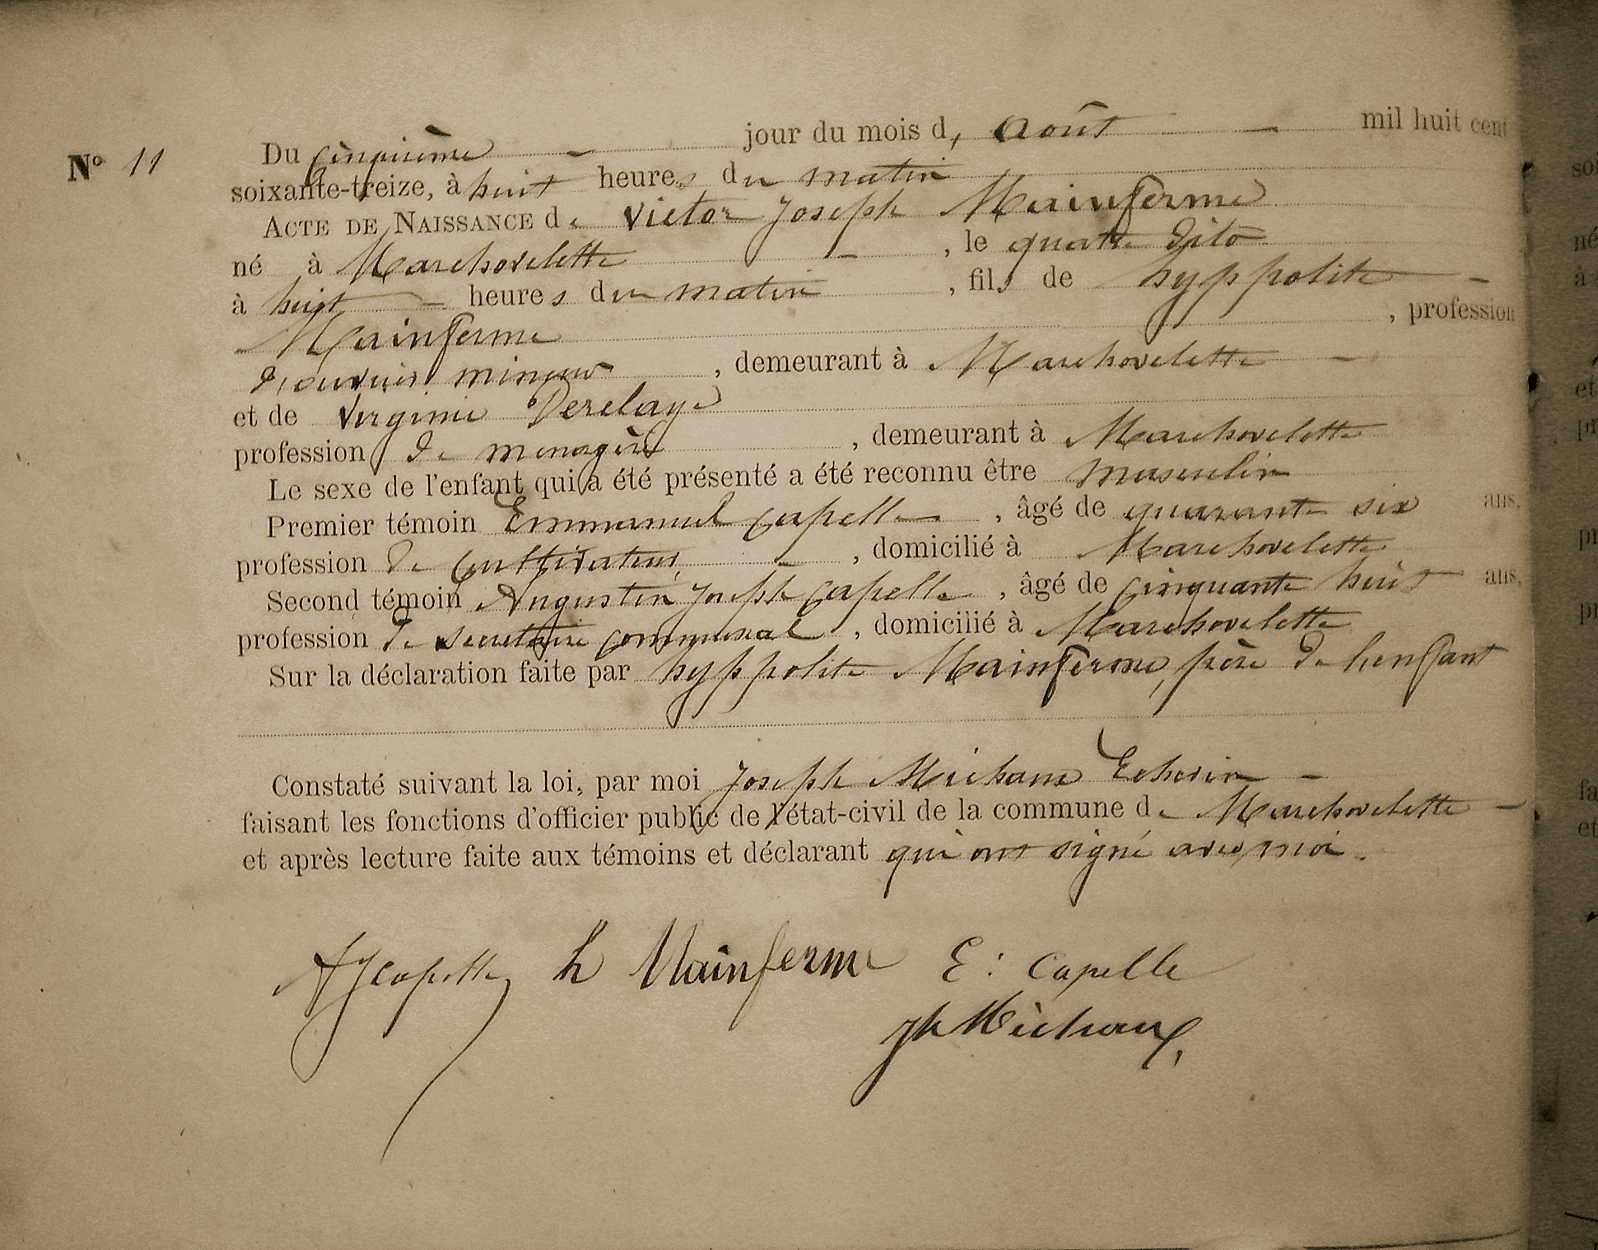 N° 11
Du cinquième jour du mois d, Août mil huit cent
soixante-treize, à huit heures du matin
ACTE DE NAISSANCE de Victor Joseph Mainferme
né à Marchovelette, le quatre dito
à huit heures du matin, fils de hyppolite
Mainferme, profession
d'ouvrier mineur, demeurant à Marchovelette
et de Virginie Derelaye
profession de menagère, demeurant à Marchovelette
Le sexe de l'enfant qui a été présenté a été reconnu être masculin
Premier témoin Emmanuel Capelle, âgé de quarante six ans,
profession de Cultivateur, domicilié à Marchovelette
Second témoin Augustin Joseph Capelle, âgé de cinquante huit ans,
profession de secretaire communal, domicilié à Marchovelette
Sur la déclaration faite par hyppolite Mainferme, père de l'enfant
Constaté suivant la loi, par moi Joseph Michaux Echevin
faisant les fonctions d'officier public de l'état-civil de la commune de Marchovelette
et après lecture faite aux témoins et déclarant qui ont signé avec moi.
AJCapelle h Mainferme E: Capelle
Jh Michaux,